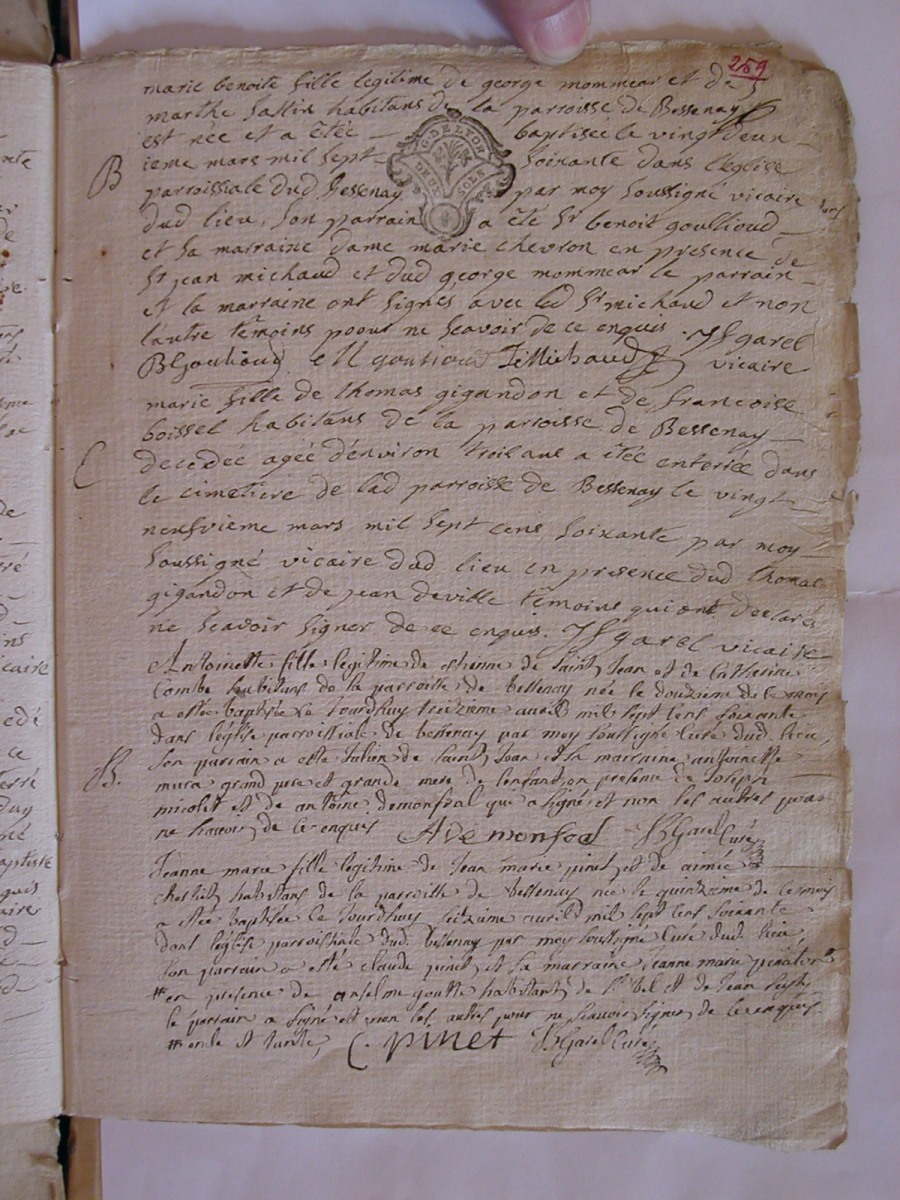 259
marie benoite fille legitime de george mommear et de
marthe habitans de la parroisse de Bessenay
est née et a étée baptisée le vingt deux
ieme mars mil sept soixante dans l'eglise
G. DE LYON
DEUX SOLS
B
parroissiale dud Bessenay par moy soussigné vicaire
dud lieu, son parrain a été Sr benoit goullioud
et sa marraine dame marie chevron en presence de
Sr jean michaud et dud george mommear le parrain
et la marraine ont signés avec led Sr michaud et non
l'autre temoins poour ne scavoir de ce enquis. garel
goulioud Michaud vicaire
marie fille de thomas gigandon et de francoise
boissel habitans de la parroisse de Bessenay
C
decedée agée d'environ trois ans a étée enterrée dans
le cimetiere de lad parroisse de Bessenay le vingt
neufvieme mars mil sept cens soixante par moy
soussigné vicaire dud lieu en presence dud thomas
gigandon et de jean deville temoins qui ont declarés
ne scavoir signer de ce enquis. garel vicaire
Antoinette fille legitime de etienne de saint Jean et de Catherine
Combe habitans de la parroisse de bessenay née le douzieme de ce mois
a estée baptisée ce jourdhuy treizieme avril mil sept cens soixante
dans l'église parroissiale de bessenay par moy soussigné Curé dud. lieu,
B
son parrain a esté Julien de saint Jean et sa marraine antoinette
mura grand pere et grande mere de l'enfant, en presence de Joseph
nicolet et de antoine demonfal que a signé et non les autres pour
ne scavoir de ce enquis ADemonfal Garel Curé
Jeanne marie fille legitime de Jean marie pinet et de aimée
habitans de la parroisse de bessenay née le quinzieme de ce mois
a estée baptisée ce jourdhuy seizieme avril mil sept cens soixante
dans l'église parroissiale dud. bessenay par moy soussigné Curé dud. lieu,
son parrain a esté claude pinet et sa marraine Jeanne marie
en presence de anselme goutte habitant de St bel et de Jean
le parrain a signé et non les autres pour ne scavoir signer de ce enquis
C. pinet Garel Curé